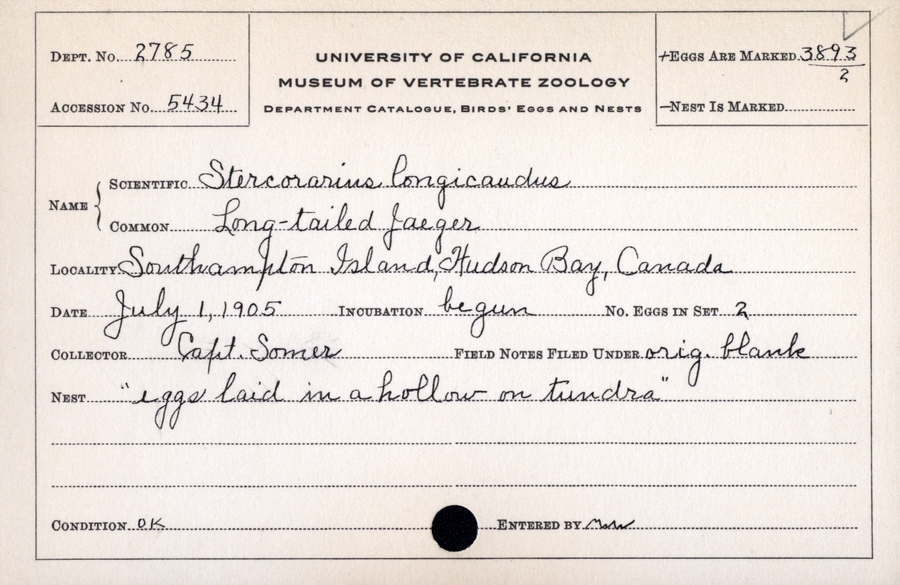 DEPT. No. 2785
ACCESSION No. 5434
UNIVERSITY OF CALIFORNIA
MUSEUM OF VERTEBRATE ZOOLOGY
DEPARTMENT CATALOGUE, BIRDS' EGGS AND NESTS
+EGGS ARE MARKED 3893
2
—NEST IS MARKED
NAME { SCIENTIFIC Stercorarius longicaudus
COMMON Long-tailed Jaeger
LOCALITY Southampton Island, Hudson Bay, Canada
DATE July 1, 1905 INCUBATION begun NO. EGGS IN SET 2
COLLECTOR Capt. Somer FIELD NOTES FILED UNDER orig. blank
NEST "eggs laid in a hollow on tundra"
CONDITION OK ENTERED BY